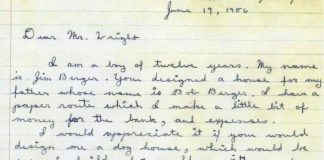 June 19, 1956
Dear Mr. Wright
I am a boy of twelve years. My name
is Jim Berger. You designed a house for my
father whose name is Bob Berger. I have a
paper route which I make a little bit of
money for the bank, and expenses.
I would appreciate it if you would
design me a dog house, which would be